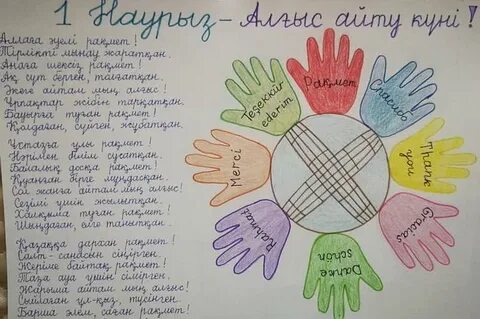 1 Наурыз - Алғыс айту күні!
Аллаға әуелі рақмет!
Тірлікті мынау жаратқан.
Анаға шексіз рақмет!
Ақ сүт берген, таңатқан.
Әкеге айтам мың алғыс!
Ұрпақтар жібін тарқатқан.
Бауырға туған рақмет!
Қолдаған, сүйген, жұбатқан.
Ұстазға ұлы рақмет!
Нәрімен білім сусатқан.
Балалық досқа рақмет!
Қуанған бірге мұңдасқан.
Сол жанға айтам мың алғыс!
Сезімі үшін жылытқан.
Халқыма туған рақмет!
Шыңдаған, өзге танытқан.
Қазаққа дархан рақмет!
Салт-санасын сіңірген.
Жеріме байтақ рақмет!
Таза ауа үшін сімірген.
Жарыма айтам мың алғыс!
Сыйлаған ұл-қыз, түсінген.
Барша әлем, саған рақмет!
Рақмет
Спасибо
Thank
you
Gracias
Danke
schön
Rahmat
Merci
Teşekkür
ederim